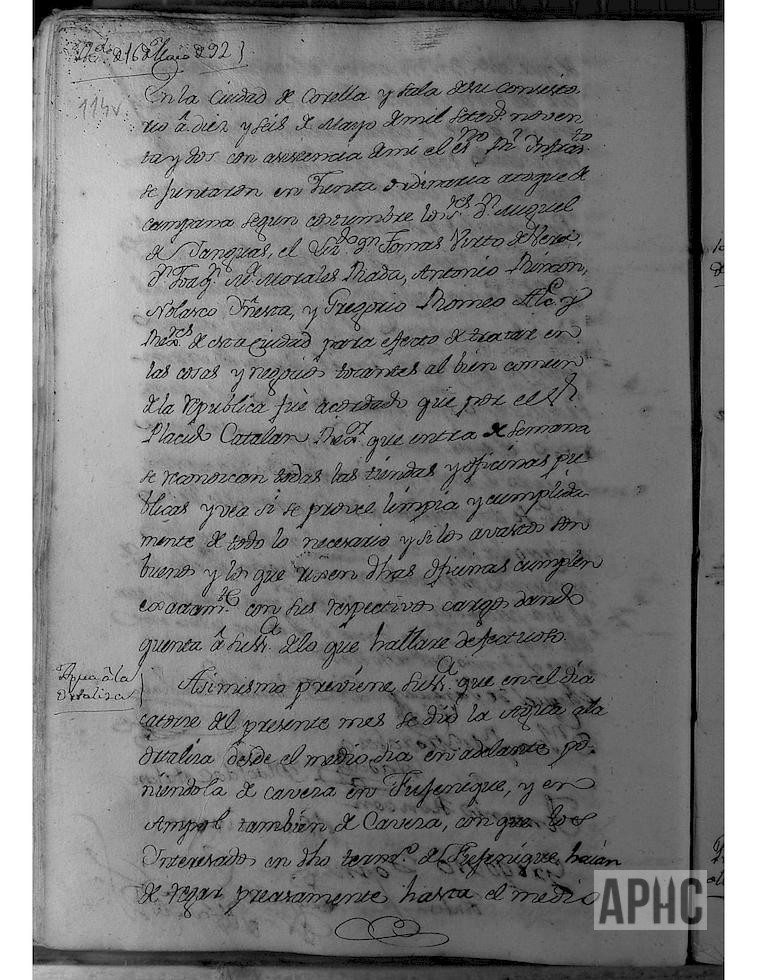 de 16 de Maio de 92
114v
En la Ciudad de Corella y Sala de su Consisto
rio â diez y seis de Mayo de mil setez.s noven
ta y dos con asistencia de mi el es.no R.l Infras.to
se Juntaron en Junta ordinaria a toque de
campana segun costumbre los S.res D.n Miguel
de Sanguas, el D.n Tomas Virto de Vera,
D.n Joaq.n M.a Morales Rada, Antonio Rincon,
Nolasco Yñesta, y Gregorio Romeo Alc.e y
Rex.res de esta Ciudad para efecto de tratar en
las cosas y negocios tocantes al bien comun
de la republica fue acordado que por el S.r
Placido Catalan Rex.or que entra de semana
se reconozcan todas las tiendas y oficinas pu
blicas y vea si se provee limpia y cumplida
mente de todo lo necesario y si los avastos son
buenos y los que usen dhas oficinas cumplen
exactam.te con sus respectivos cargos dando
quenta â su S.a de lo que hallare defectuoso.
Agua â la
Ortaliza
Asimismo previene su S.a que en el dia
catorze del presente mes se dió la Agua a la
ortaliza desde el medio dia en adelante po-
niendola de cavera en Fuspenique, y en
Ampol tambien de Cavera, con que los
Interesados en dho term.o de Fuspenique, havian
de regar precisamente hasta el medio
APHC